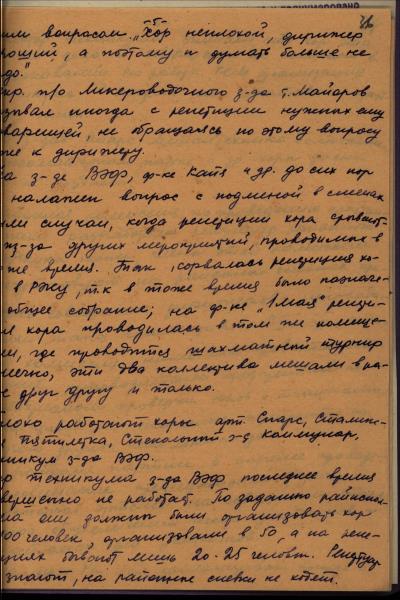 -5-
или вопросом. "Хор неплохой, дирижер
рощий, а поэтому и думать больше не
до."
кр. п/о Ликероводочного з-да т. Майоров
зывал иногда с репетиции нужных ему
варищей, не обращаясь по этому вопросу
же к дирижеру.
а з-де ВЭФ, ф-ке Катя и др. до сих пор
налажен вопрос с подменой в сменах
или случаи, когда репетиции хора срывают
из-за других мероприятий, проводимых в
же время. Так, сорвалась репетиция хо-
в РЖУ, т.к в тоже время было назначе-
общее собрание; на ф-ке "1 мая" репети-
я хора проводилась в том же помеще-
ии, где проводится шахматный турнир
нечно, эти два коллектива мешали в ра-
е друг другу и только.
лохо работают хоры арт. Спарс, Сталин-
я пятилетка, Стекольный з-д Коммунар,
хникум з-да ВЭФ.
р техникума з-да ВЭФ последнее время
вершенно не работает. По заданию райиспол-
ма они должны были организовать хор
100 человек, организовали в 50, а на репе-
циях бывают лишь 20-25 человек. Репертуар
знают, на районные спевки не ходят.